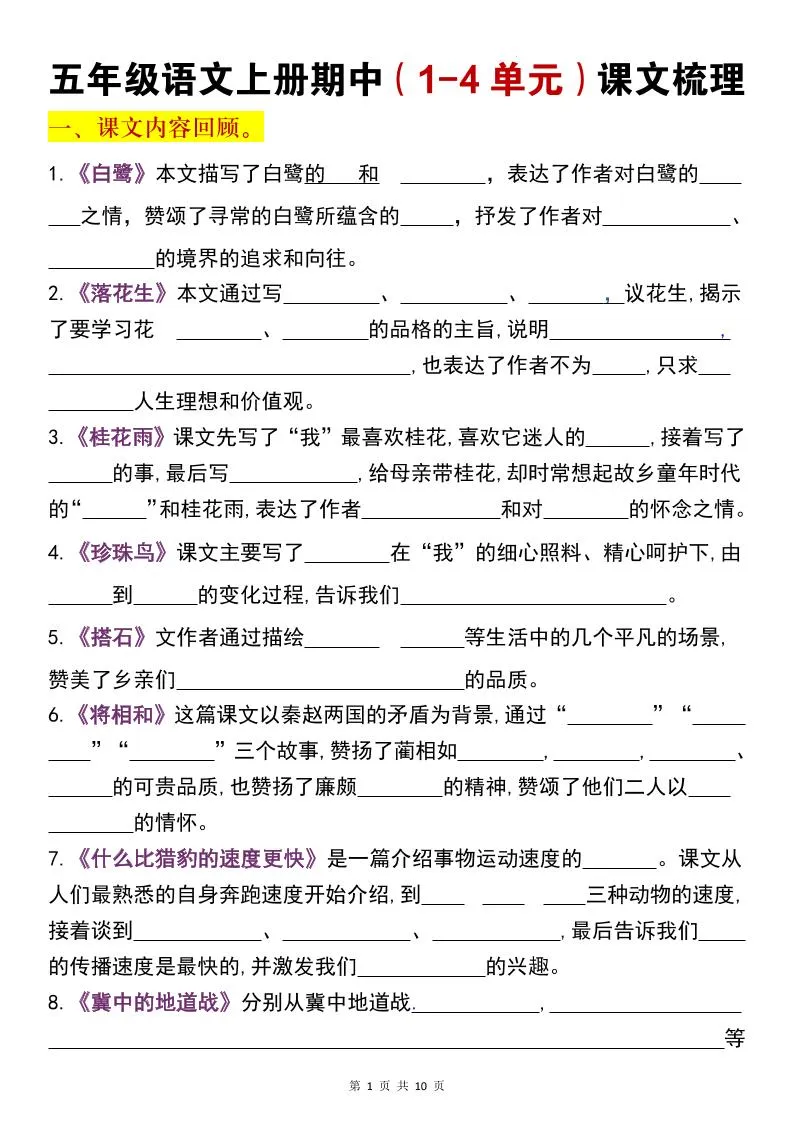 五年级语文上册期中（1-4 单元）课文梳理
一、课文内容回顾。
1.《白鹭》本文描写了白鹭的___和 ________，表达了作者对白鹭的____
___之情，赞颂了寻常的白鹭所蕴含的_____，抒发了作者对____________、
__________的境界的追求和向往。
2.《落花生》本文通过写_________、__________、_______，_议花生,揭示
了要学习花 ________、________的品格的主旨,说明________________,
__________________________________,也表达了作者不为_____,只求___
________人生理想和价值观。
3.《桂花雨》课文先写了“我”最喜欢桂花,喜欢它迷人的______,接着写了
______的事,最后写____________,给母亲带桂花,却时常想起故乡童年时代
的“______”和桂花雨,表达了作者_____________和对________的怀念之情。
4.《珍珠鸟》课文主要写了________在“我”的细心照料、精心呵护下,由
______到______的变化过程,告诉我们_________________________。
5.《搭石》文作者通过描绘_______ ______等生活中的几个平凡的场景,
赞美了乡亲们___________________________的品质。
6.《将相和》这篇课文以秦赵两国的矛盾为背景,通过“________”“_____
____”“________”三个故事,赞扬了蔺相如________,________,________、
______的可贵品质,也赞扬了廉颇________的精神,赞颂了他们二人以____
________的情怀。
7.《什么比猎豹的速度更快》是一篇介绍事物运动速度的_______。课文从
人们最熟悉的自身奔跑速度开始介绍,到____ ____ ____三种动物的速度,
接着谈到____________、____________、____________,最后告诉我们____
的传播速度是最快的,并激发我们____________的兴趣。
8.《冀中的地道战》分别从冀中地道战.____________,__________________
________________________________________________________________等
第 1 页 共 10 页